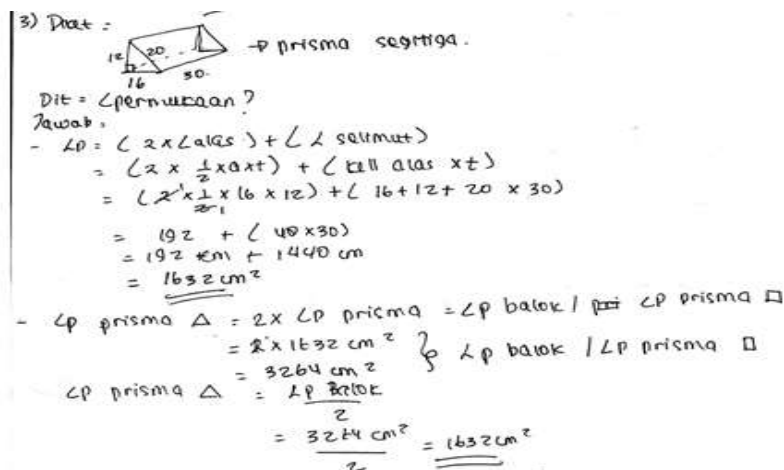 3) Diket :
12 20 → prisma segitiga.
16 30.
Dit = Lpermukaan ?
Jawab :
- Lp = ( 2 x Lalas ) + ( L selimut )
= ( 2 x 1/2 x a x t ) + ( kell alas x t )
= ( 2 x 1/2 x 16 x 12 ) + ( 16 + 12 + 20 x 30 )
= 192 + ( 48 x 30 )
= 192 cm + 1440 cm
= 1632 cm²
- Lp prisma △ = 2 x Lp prisma = Lp balok / Lp prisma □
= 2 x 1632 cm² } Lp balok / Lp prisma □
= 3264 cm²
Lp prisma △ = Lp Balok / 2
= 3264 cm² / 2 = 1632 cm²